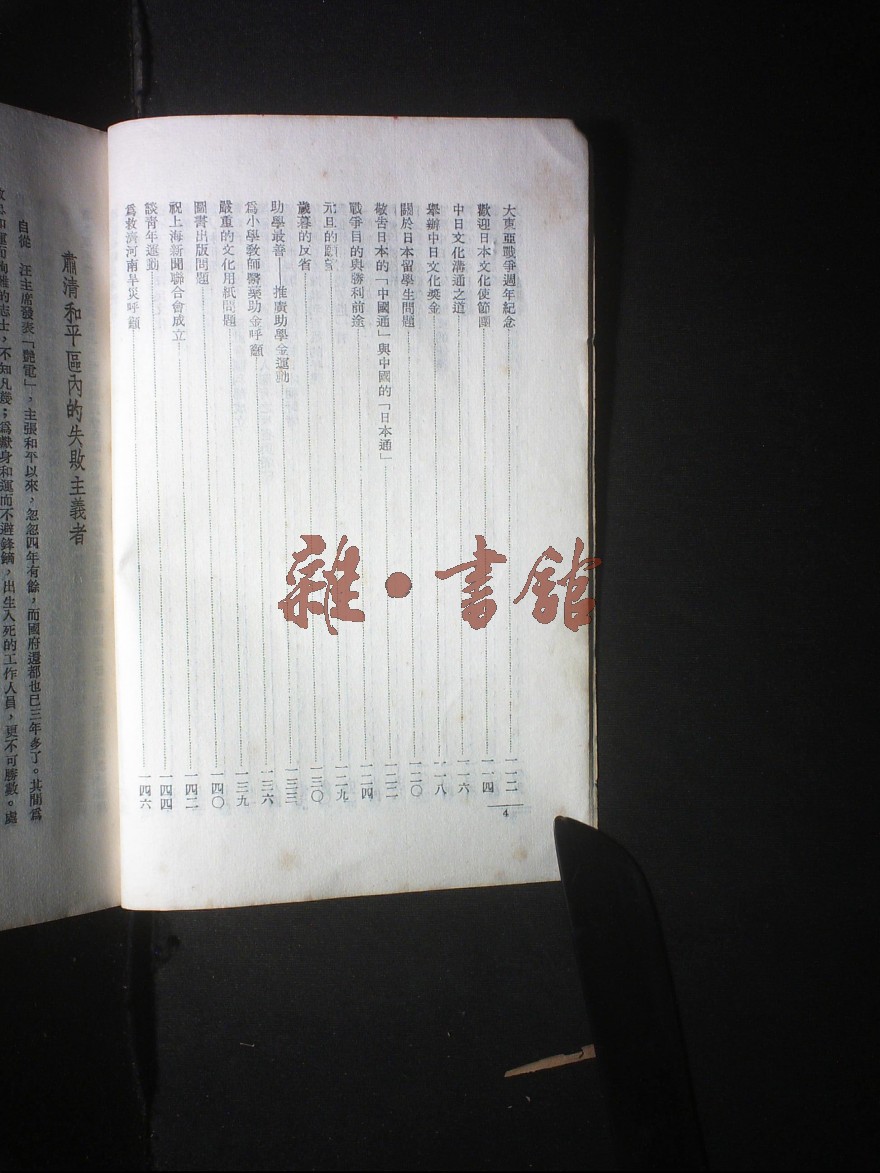 大東亞戰爭週年紀念……一一二
歡迎日本文化使節團……一一四
中日文化溝通之道……一一六
舉辦中日文化獎金……一一八
關於日本留學生問題……一二〇
敬告日本的「中國通」與中國的「日本通」……一二二
戰爭目的與勝利前途……一二四
元旦的願望……一二九
歲暮的反省……一三〇
助學最善——推廣助學金運動……一三三
為小學教師醫藥助金呼籲……一三六
嚴重的文化用紙問題……一三九
圖書出版問題……一四〇
祝上海新聞聯合會成立……一四二
談青年運動……一四四
為救濟河南旱災呼籲……一四六
4
雜·書館
肅清和平區內的失敗主義者
自從 汪主席發表「艷電」,主張和平以來,忽忽四年有餘,而國府還都也已三年多了。其間為
和運而殉難的志士,不知凡幾;為獻身和運而不避鋒鏑,出生入死的工作人員,更不可勝數。處